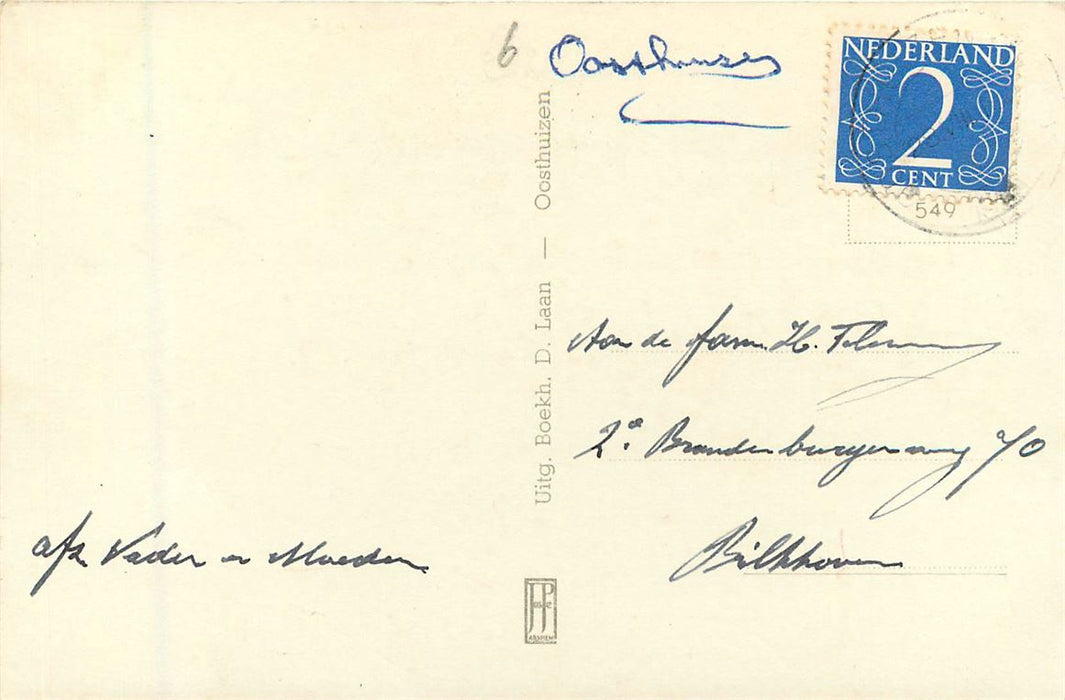 6 Oosthuizen
NEDERLAND
2
CENT
549
Uitg. Boekh. D. Laan — Oosthuizen
Aan de fam. H.
2e Brandenburgerweg 70
Bilthoven
afz. Vader en Moeder
JP
ARNHEM